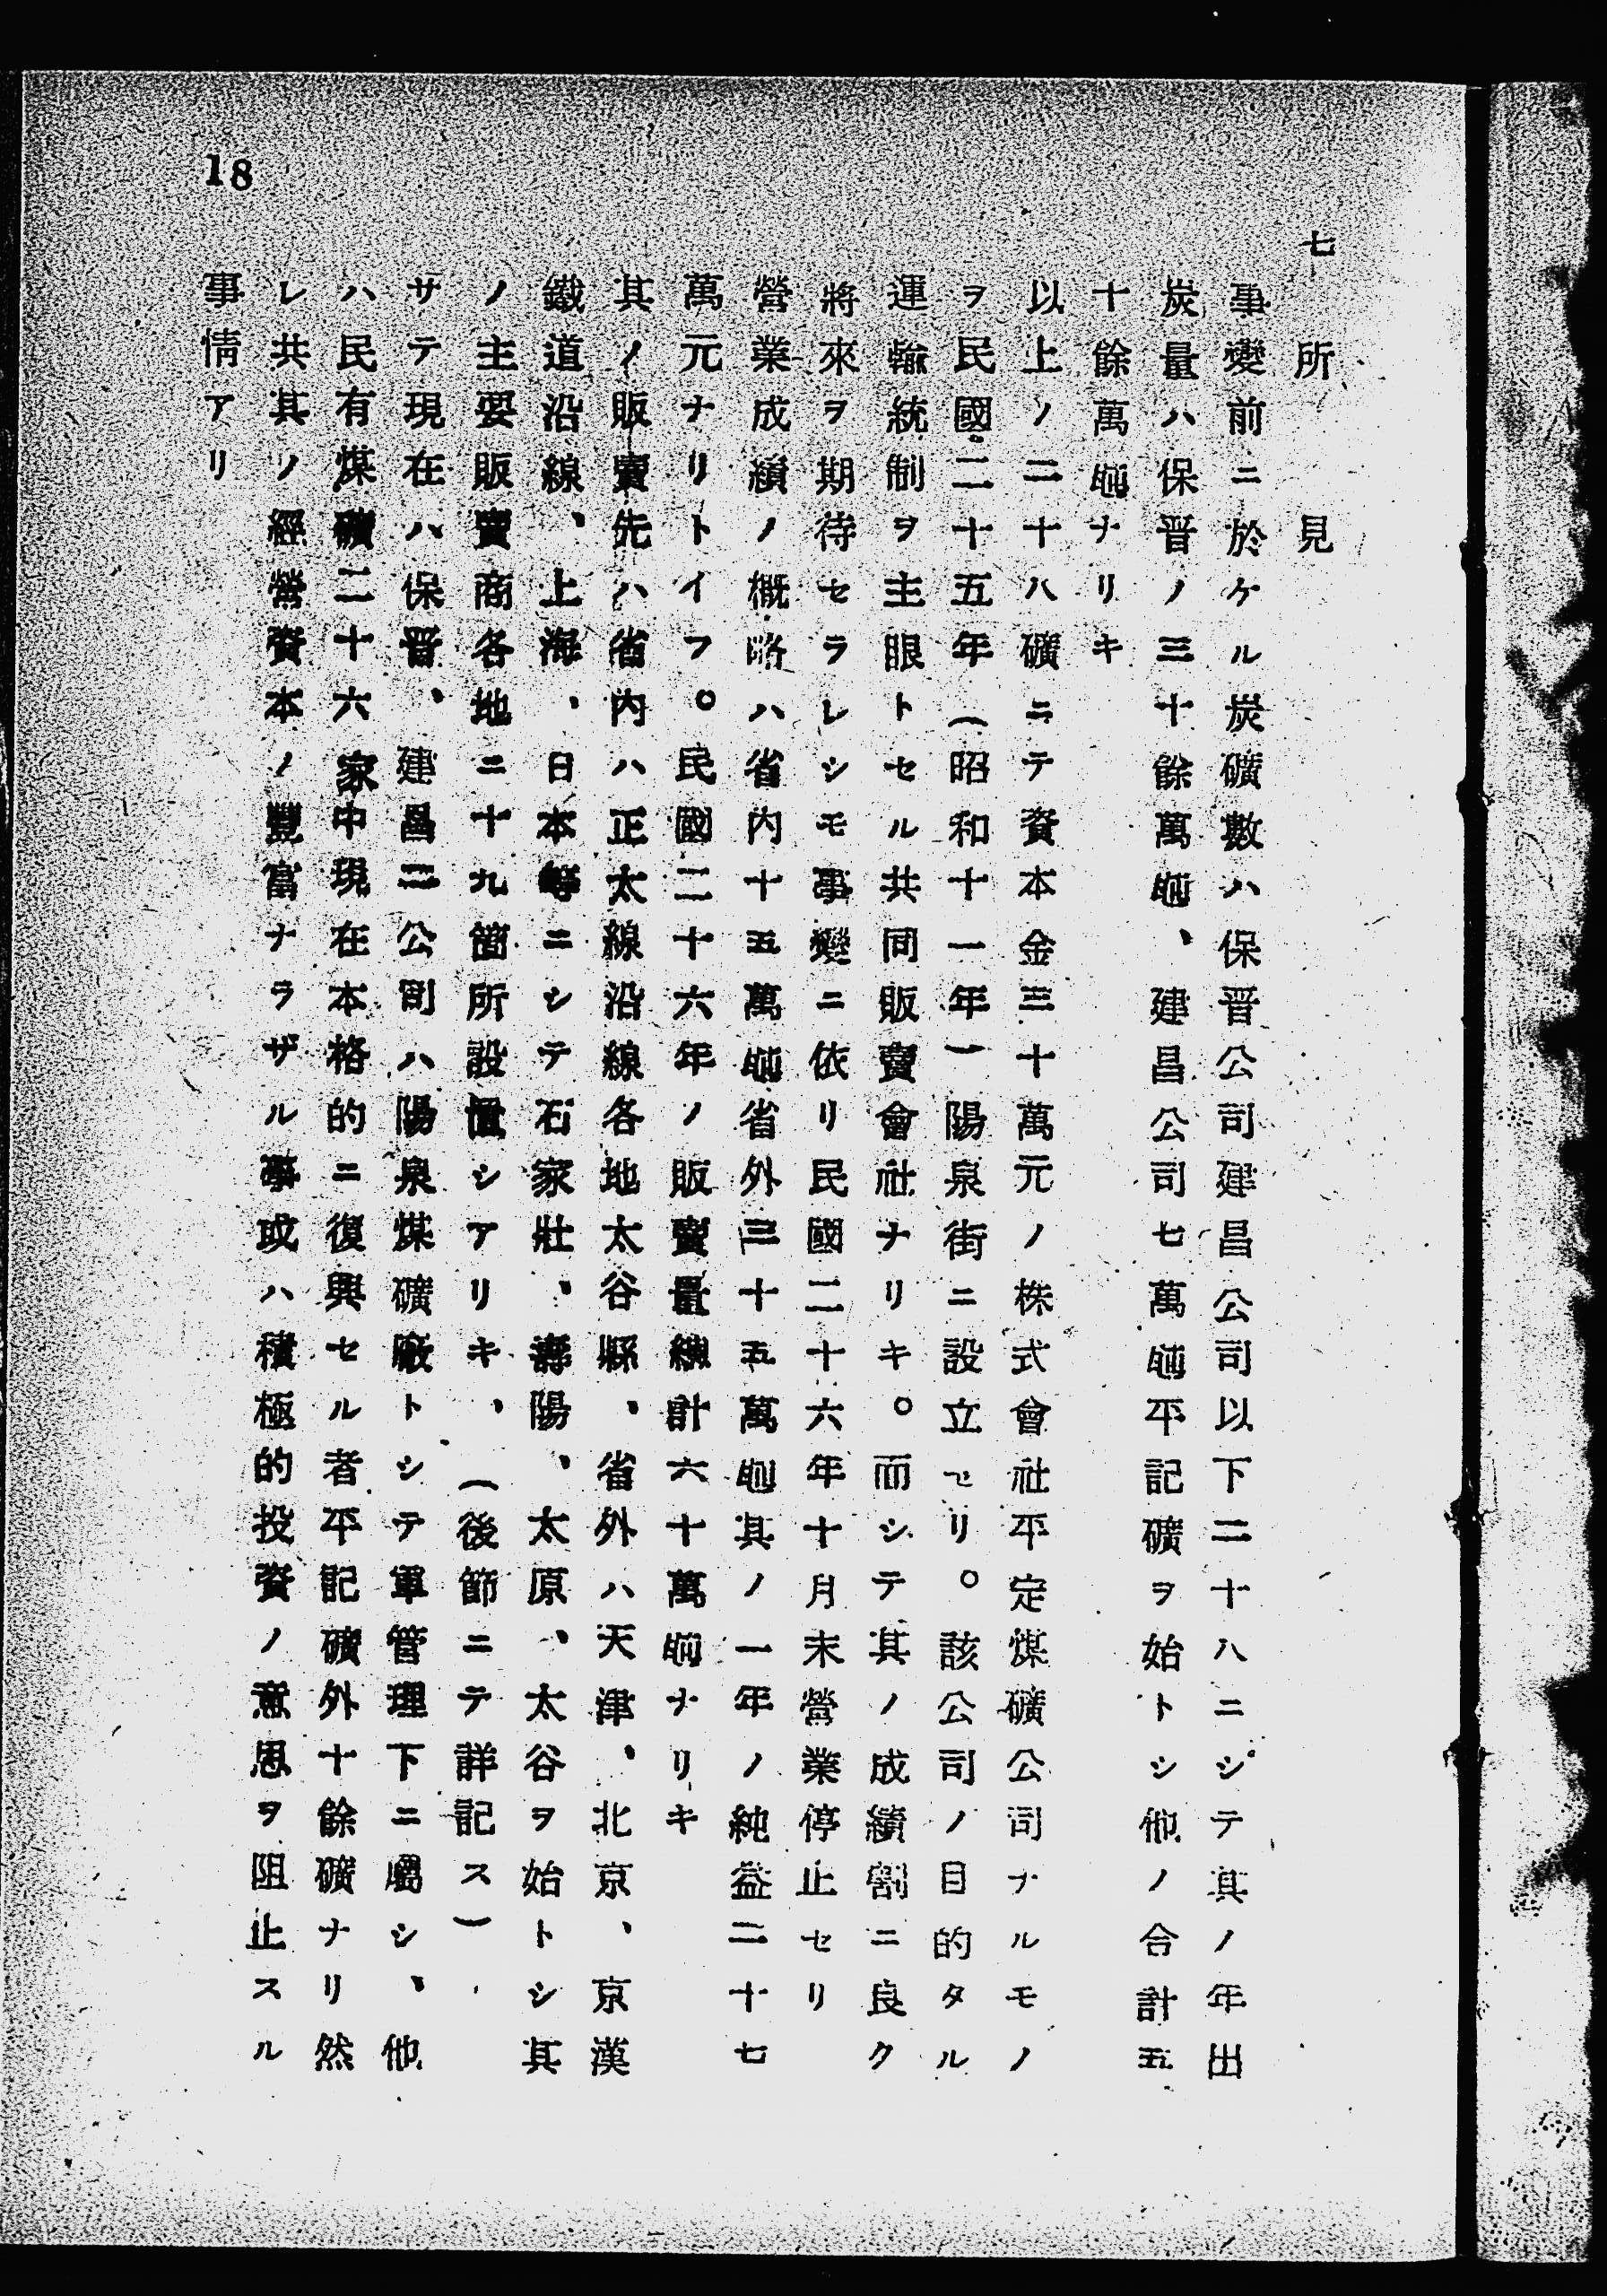 七 所見
事變前ニ於ケル炭礦數ハ保晋公司建昌公司以下二十ハニシテ其ノ年出
炭量ハ保晋ノ三十餘萬瓲、建昌公司七萬瓲平記礦ヲ始トシ他ノ合計五
十餘萬瓲ナリキ
以上ノ二十ハ礦ニテ資本金三十萬元ノ株式會社平定煤礦公司ナルモノ
ヲ民國二十五年(昭和十一年)陽泉街ニ設立セリ。該公司ノ目的タル
運輸統制ヲ主眼トセル共同販賣會社ナリキ。而シテ其ノ成績割ニ良ク
將來ヲ期待セラレシモ事變ニ依リ民國二十六年十月末營業停止セリ
營業成績ノ概略ハ省內十五萬瓲省外三十五萬瓲其ノ一年ノ純益二十七
萬元ナリトイフ。民國二十六年ノ販賣量總計六十萬瓲ナリキ
其ノ販賣先ハ省內ハ正太線沿線各地太谷縣、省外ハ天津、北京、京漢
鐵道沿線、上海、日本等ニシテ石家莊、壽陽、太原、太谷ヲ始トシ其
ノ主要販賣商各地ニ十九箇所設置シアリキ、(後節ニテ詳記ス)
サテ現在ハ保晋、建昌二公司ハ陽泉煤礦廠トシテ軍管理下ニ屬シ、他
ハ民有煤礦二十六家中現在本格的ニ復興セル者平記礦外十餘礦ナリ然
レ共其ノ經營資本ノ豐富ナラザル事或ハ積極的投資ノ意思ヲ阻止スル
事情アリ
18